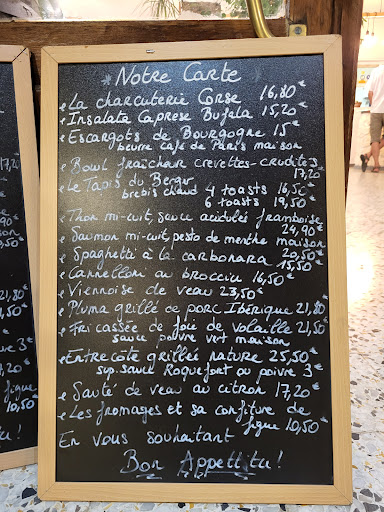 Notre Carte
La charcuterie Corse 16,80€
Insalata Caprese Bufela 15,20€
Escargots de Bourgogne 15€
beurre café de Paris maison
Bowl fraîcheur crevettes-crudités
17,20€
Le Tapis du Berger
brebis chaud 4 toasts 16,50€
6 toasts 19,50€
Thon mi-cuit, sauce acidulée framboise
24,90€
Saumon mi-cuit, pesto de menthe maison
20,50€
Spaghetti à la carbonara 15,50€
Cannelloni au brocciu 16,50€
Viennoise de veau 23,50€
Pluma grillé de porc Ibérique 21,80€
Fricassée de foie de volaille 21,50€
sauce poivre vert maison
Entrecôte grillée nature 25,50€
sup. sauce Roquefort ou poivre 3€
Sauté de veau au citron 17,20€
Les fromages et sa confiture de
figue 10,50€
En vous souhaitant
Bon Appetitu!
17,20
21,80€
21,50€
3€
17,20€
figue
10,50€